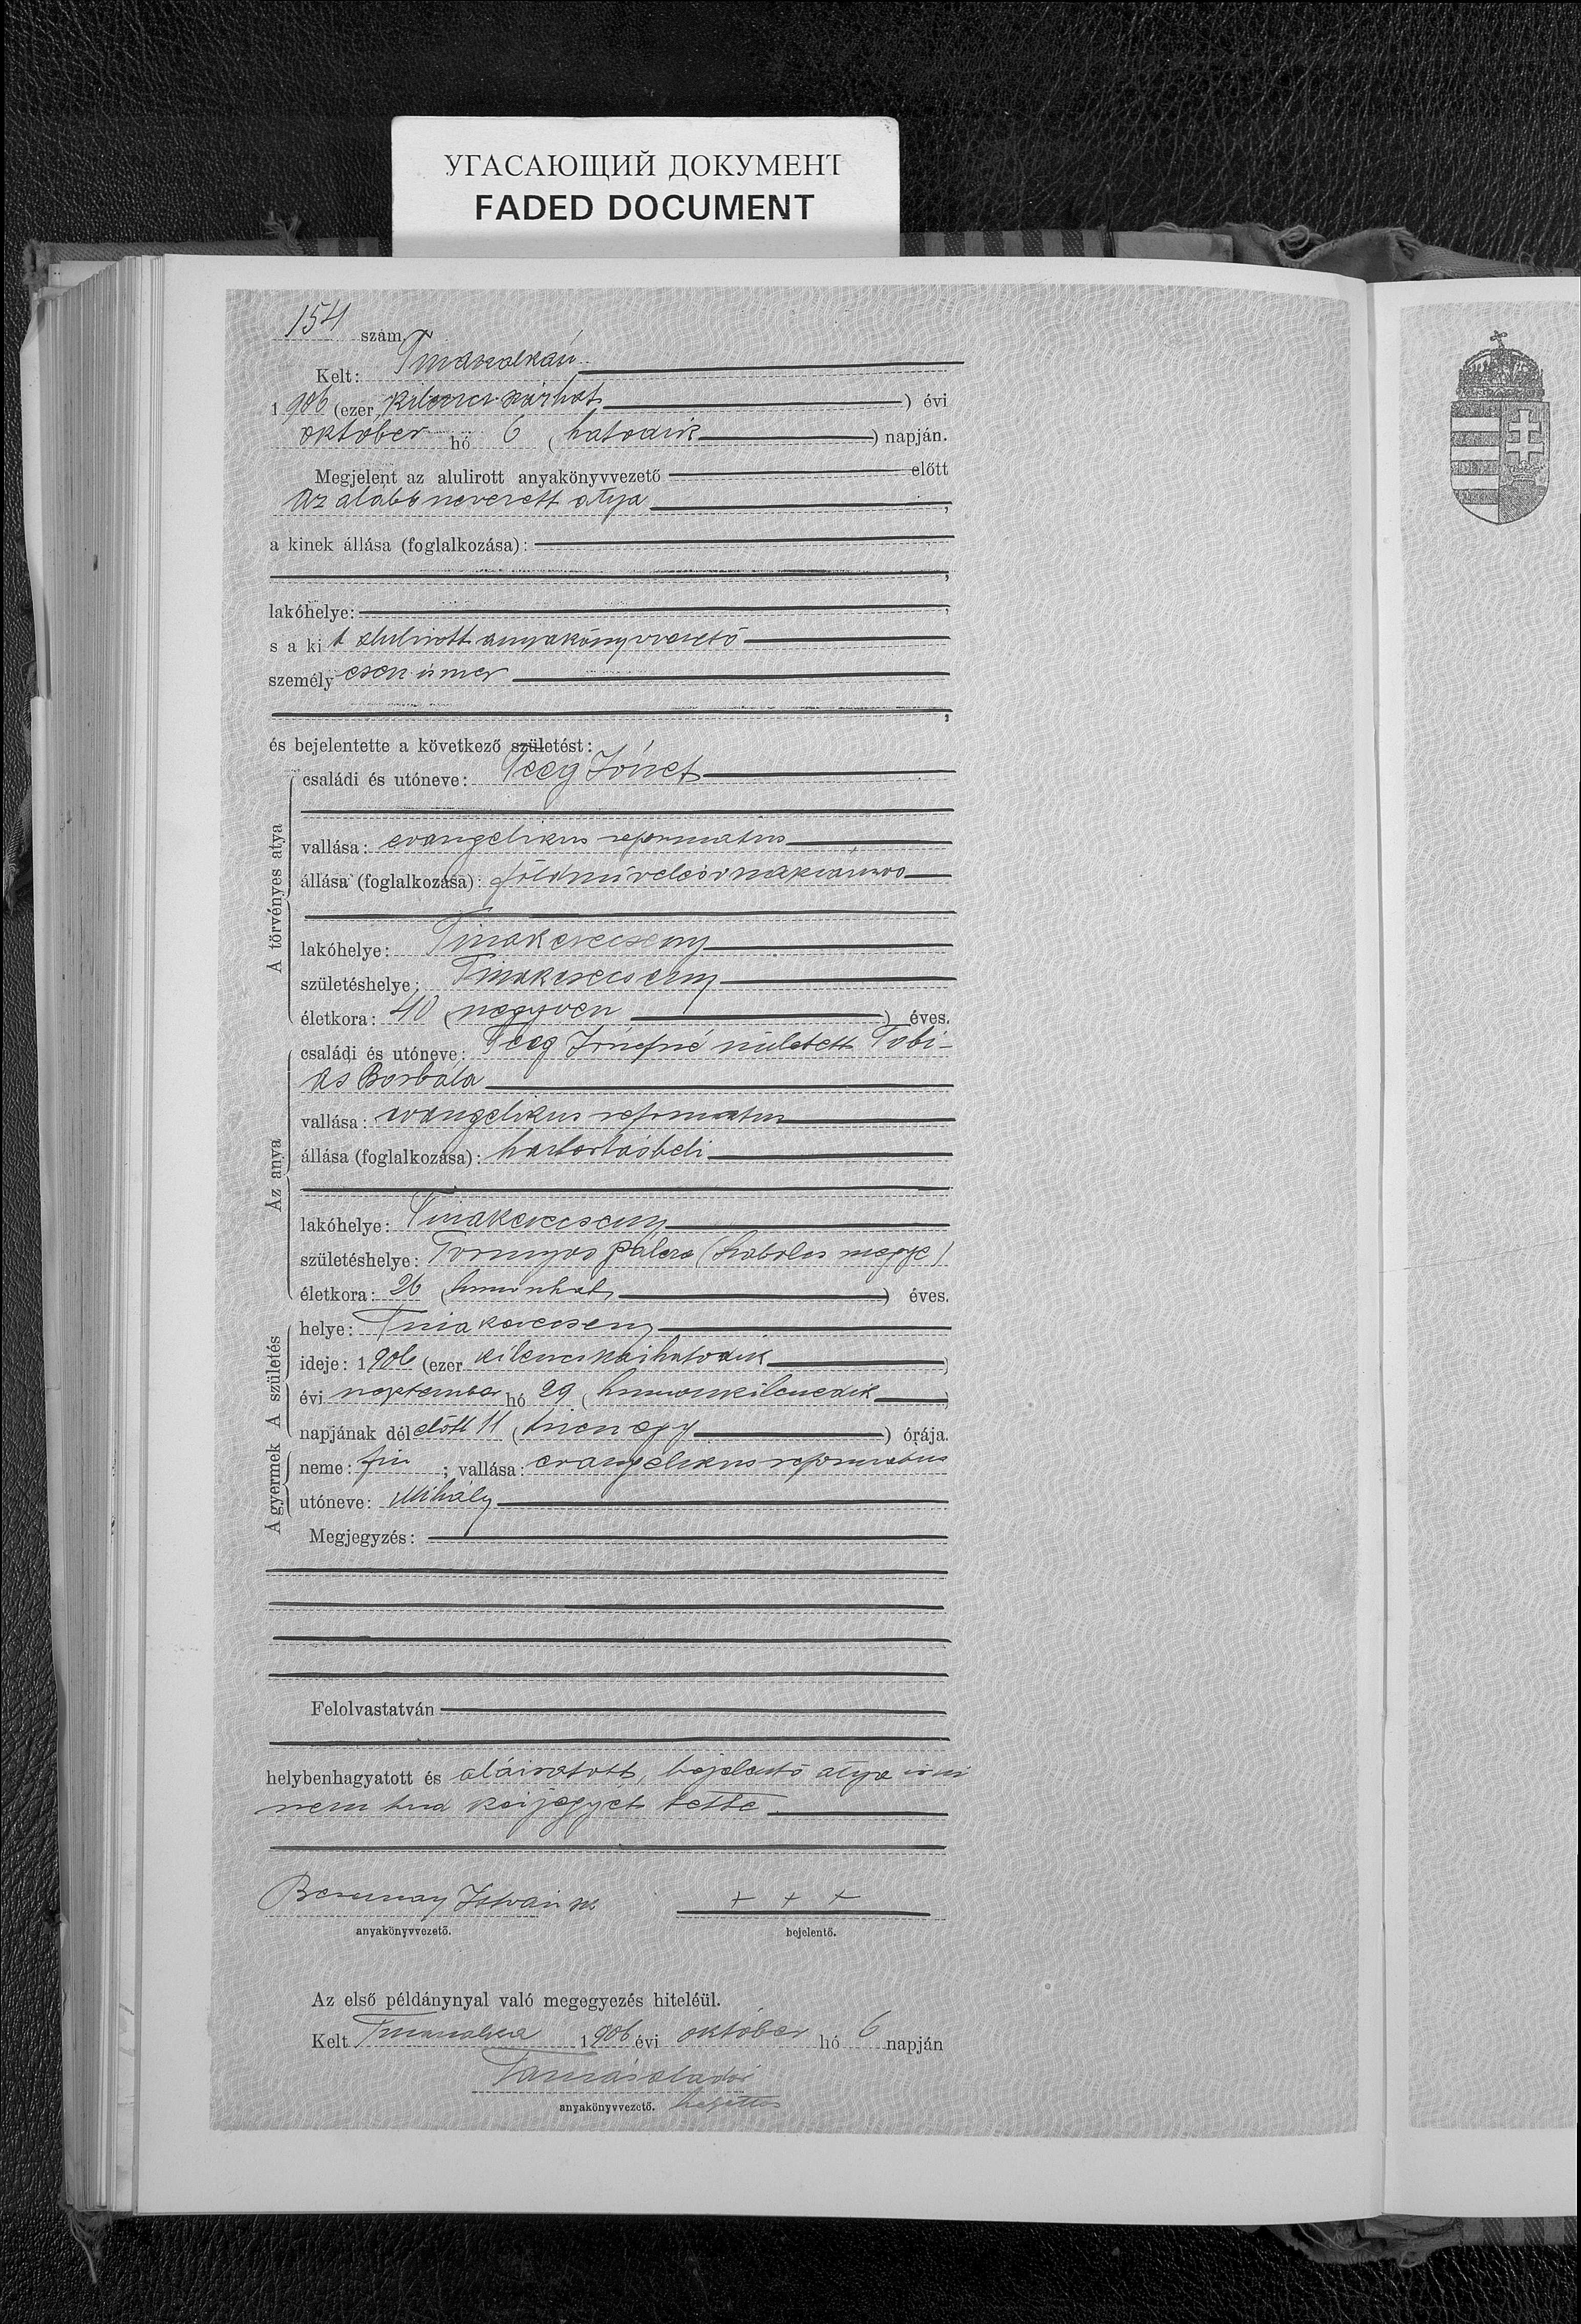 УГАСАЮЩИЙ ДОКУМЕНТ
FADED DOCUMENT
154 szám.
Kelt: Tiszakarád
1 906 (ezer kilencszázhat) évi
október hó 6 (hatodik) napján.
Megjelent az alulirott anyakönyvvezető előtt
az alább nevezett atya,
a kinek állása (foglalkozása):
lakóhelye:
s a ki t alulirott anyakönyvvezető
személy esen ismer
és bejelentette a következő születést:
A törvényes atya
családi és utóneve: József
vallása: evangelikus reformatus
állása (foglalkozása): földmivelés
lakóhelye: Tiszakerecseny
születéshelye: Tiszakerecseny
életkora: 40 (negyven) éves.
Az anya
családi és utóneve: Józsefné született Tobi-
ás Borbála
vallása: evangelikus reformatus
állása (foglalkozása): háztartásbeli
lakóhelye: Tiszakerecseny
születéshelye: Tornyos Pálca (Szabolcs megye)
életkora: 26 (huszonhat) éves.
A születés
helye: Tiszakerecseny
ideje: 1 906 (ezer kilencszázhatodik)
évi szeptember hó 29 (huszonkilencedik)
napjának dél előtt 11 (tizenegy) órája.
A gyermek
neme: fiu; vallása: evangelikus reformatus
utóneve: Mihály
Megjegyzés:
Felolvastatván
helybenhagyatott és aláiratott, bejelentő atya irni
nem tud kézjegyét tette
István sk + + +
anyakönyvvezető. bejelentő.
Az első példánynyal való megegyezés hiteléül.
Kelt 1 906 évi október hó 6 napján
anyakönyvvezető. helyettes